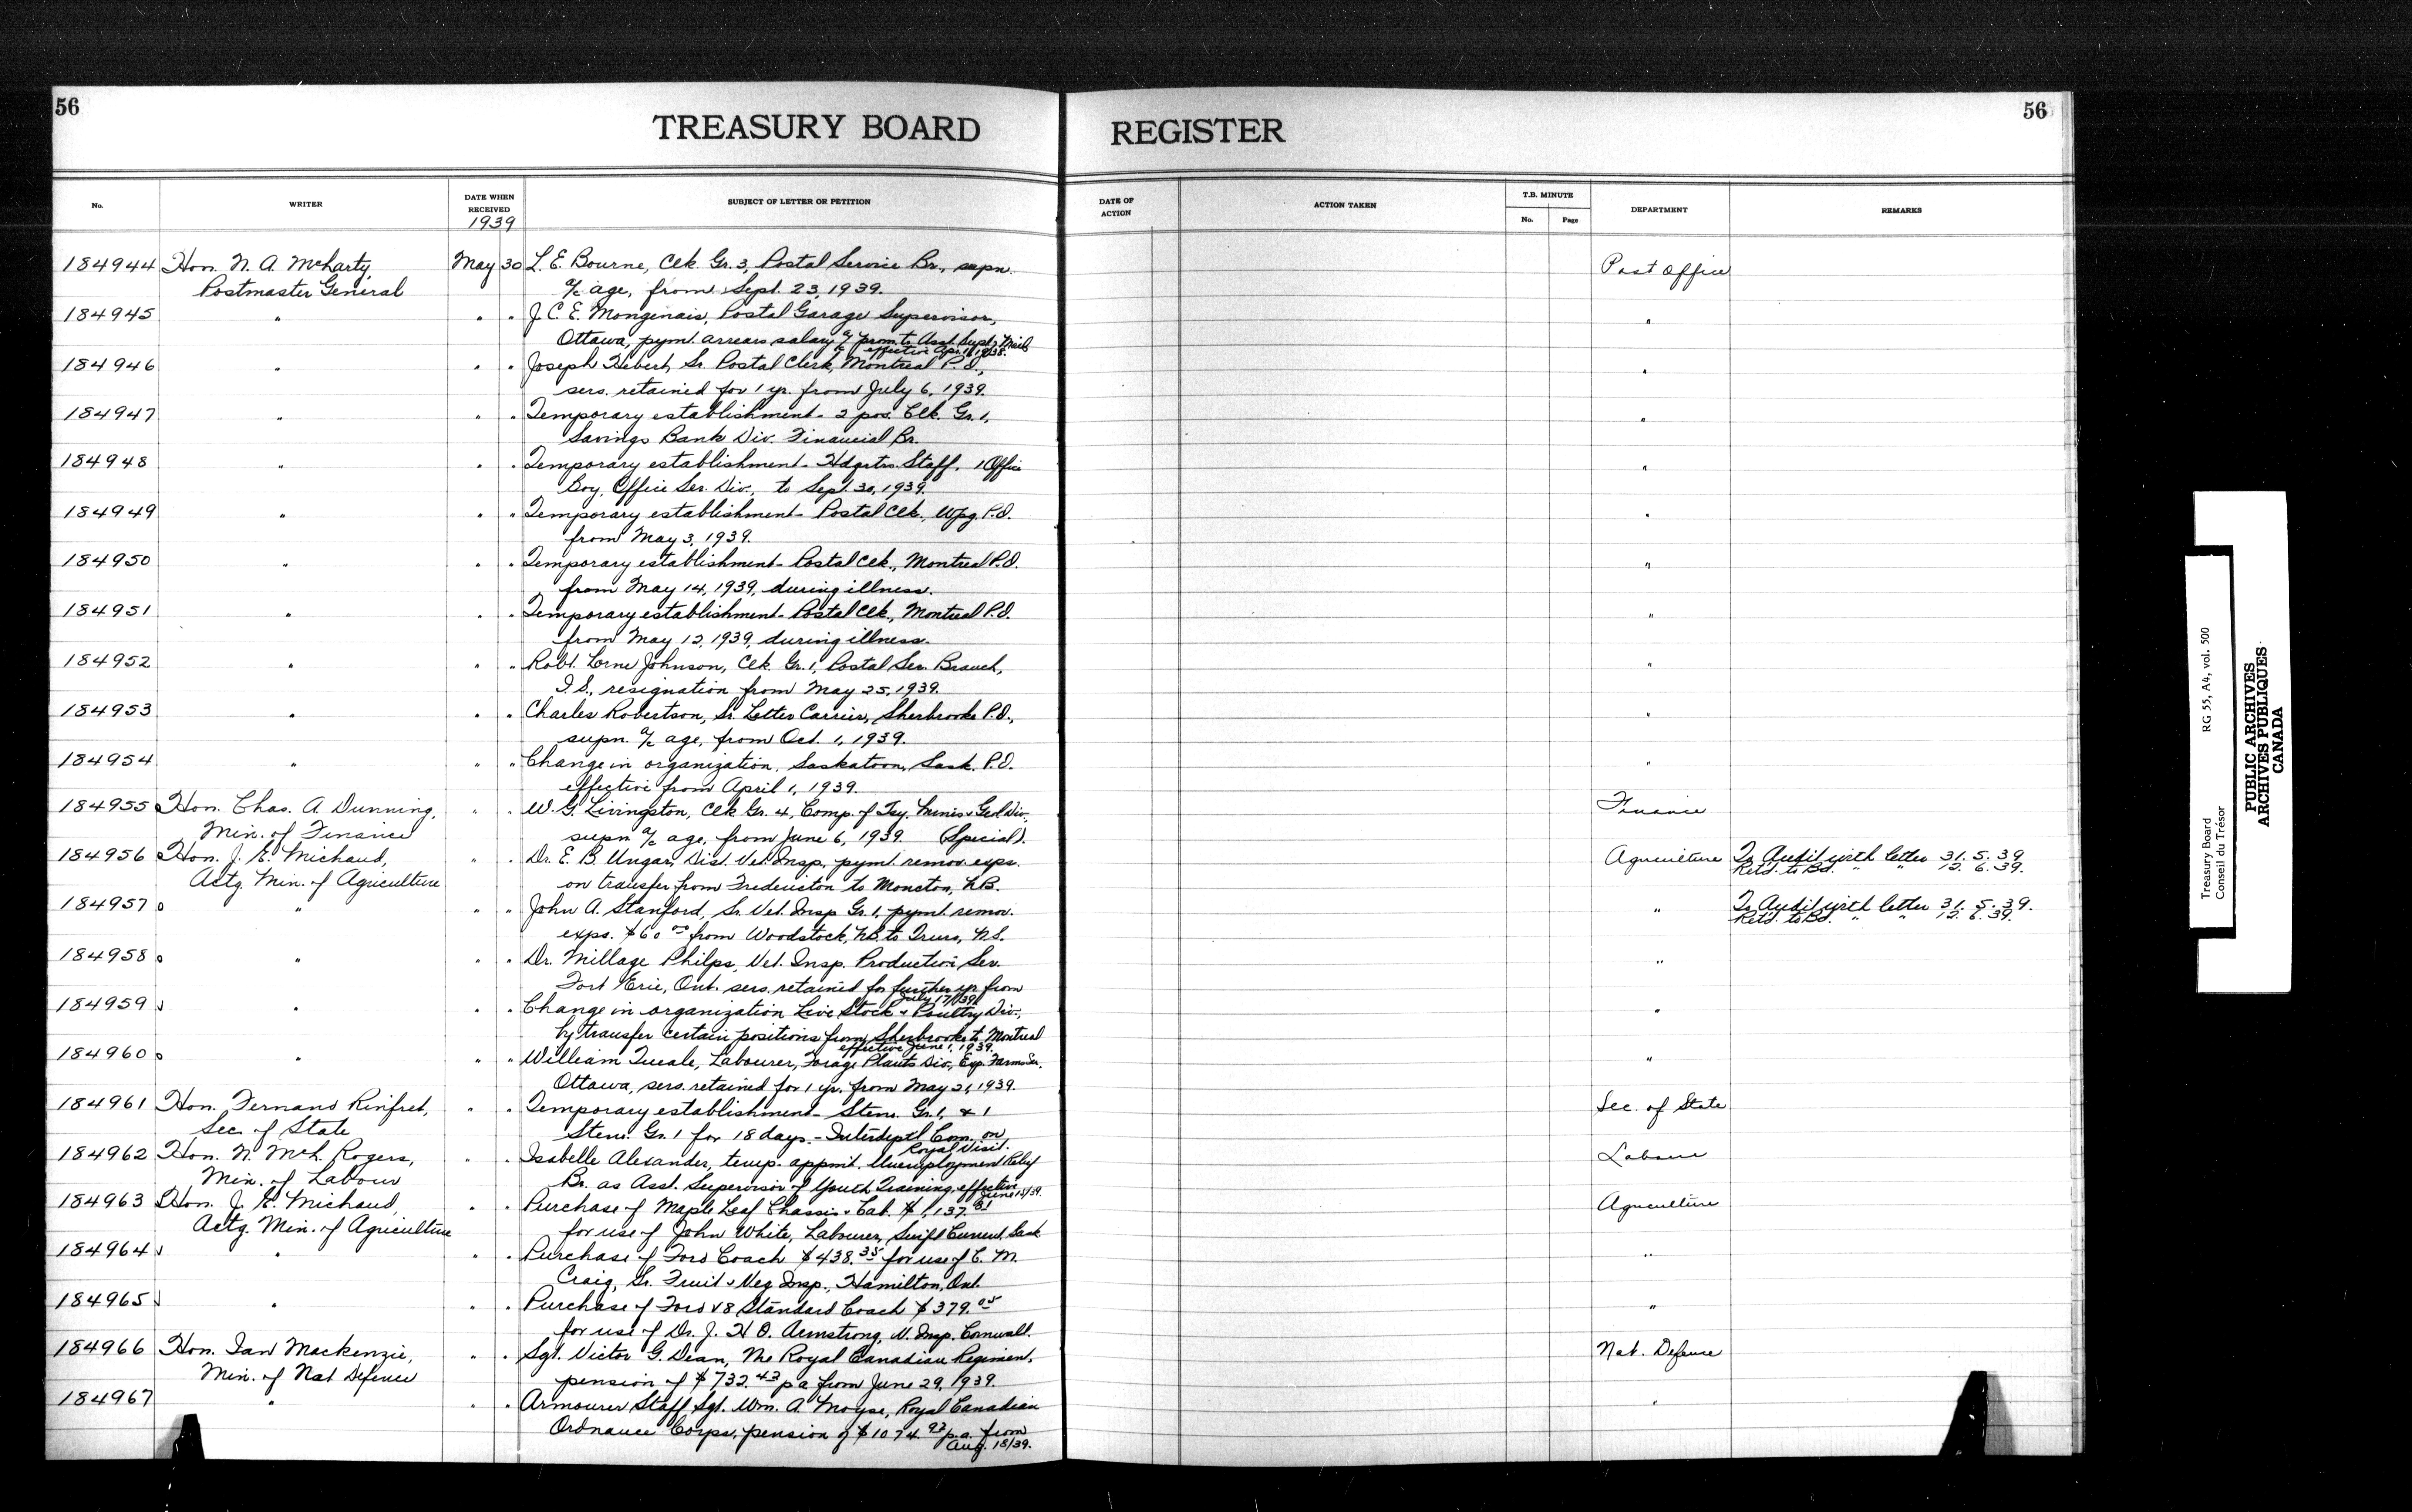 56
56
TREASURY BOARD REGISTER
No. WRITER DATE WHEN RECEIVED SUBJECT OF LETTER OR PETITION DATE OF ACTION ACTION TAKEN T.B. MINUTE No. Page DEPARTMENT REMARKS
1939
184944 Hon. N. A. McLarty, May 30 L. E. Bourne, Clk. Gr. 3, Postal Service Br., supn. Post Office
Postmaster General a/c age, from Sept. 23, 1939.
184945 " " " J. C. E. Mongenais, Postal Garage Supervisor, "
Ottawa, pymt. arrears salary a/c prom. to Asst. Supt. Mails
effective Apr. 1, 1938.
184946 " " " Joseph Hebert, Sr. Postal Clerk, Montreal P.O., "
sers. retained for 1 yr. from July 6, 1939.
184947 " " " Temporary establishment - 2 pos. Clk. Gr. 1, "
Savings Bank Div. Financial Br.
184948 " " " Temporary establishment - Hdqrtrs. Staff. 1 Office "
Boy, Office Ser. Div., to Sept. 30, 1939.
184949 " " " Temporary establishment - Postal Clk., Wpg. P.O. "
from May 3, 1939.
184950 " " " Temporary establishment - Postal Clk., Montreal P.O. "
from May 14, 1939, during illness.
184951 " " " Temporary establishment - Postal Clk., Montreal P.O. "
from May 12, 1939, during illness.
184952 " " " Robt. Lorne Johnson, Clk. Gr. 1, Postal Ser. Branch, "
I.S., resignation from May 25, 1939.
184953 " " " Charles Robertson, Sr. Letter Carrier, Sherbrooke P.O., "
supn. a/c age, from Oct. 1, 1939.
184954 " " " Change in organization, Saskatoon, Sask. P.O. "
effective from April 1, 1939.
184955 Hon. Chas. A Dunning, " " W. G. Livingston, Clk Gr. 4, Comp. of Tsy. Mines & Geol Div., Finance
Min. of Finance supn. a/c age, from June 6, 1939. (Special).
184956 Hon. J. E. Michaud, " " Dr. E. B. Ungar, Dist. Vet. Insp., pymt. remov. exps. Agriculture To Audit with letter 31. 5. 39
Actg. Min. of Agriculture on transfer from Fredericton to Moncton, N.B. Retd. to Bd. " " 12. 6. 39.
184957 " " " John A. Stanford, Sr. Vet. Insp. Gr. 1, pymt. remov. " To Audit with letter 31. 5. 39.
exps. $60 00 from Woodstock, N.B. to Truro, N.S. Retd. to Bd. " " 12. 6. 39.
184958 " " " Dr. Millage Philps, Vet. Insp. Production Ser. "
Fort Erie, Ont. sers. retained for further yr. from
July 17/39.
184959 " " " Change in organization Live Stock & Poultry Div., "
by transfer certain positions from Sherbrooke to Montreal
effective June 1, 1939.
184960 " " " William Tueale, Labourer, Forage Plants Div., Exp. Farms Ser. "
Ottawa, sers. retained for 1 yr. from May 21, 1939.
184961 Hon. Fernand Rinfret, " " Temporary establishment - Steno. Gr. 1, & 1 Sec. of State
Sec. of State Steno. Gr. 1 for 18 days. - Interdeptl Com. on
Royal Visit.
184962 Hon. N. McL. Rogers, " " Isabelle Alexander, temp. appmt. Unemployment Relief Labour
Min. of Labour Br. as Asst. Supervisor of Youth Training, effective
June 15/39.
184963 Hon. J. E. Michaud, " " Purchase of Maple Leaf Chassis & Cab. $1,137.81 Agriculture
Actg. Min. of Agriculture for use of John White, Labourer, Swift Current, Sask
184964 " " " Purchase of Ford Coach $438.35 for use of C. M. "
Craig, Sr. Fruit & Veg. Insp., Hamilton, Ont.
184965 " " " Purchase of Ford V8 Standard Coach $379.05 "
for use of Dr. J. H. O. Armstrong, V. Insp. Cornwall.
184966 Hon. Ian Mackenzie, " " Sgt. Victor G. Dean, The Royal Canadian Regiment, Nat. Defence
Min. of Nat Defence pension of $732.43 p.a from June 29, 1939.
184967 " " " Armourer Staff Sgt. Wm. A. Moyse, Royal Canadian "
Ordnance Corps, pension of $1074.92 p.a. from
Aug. 18/39.
Treasury Board RG 55, A4, vol. 500
Conseil du Trésor
PUBLIC ARCHIVES
ARCHIVES PUBLIQUES
CANADA